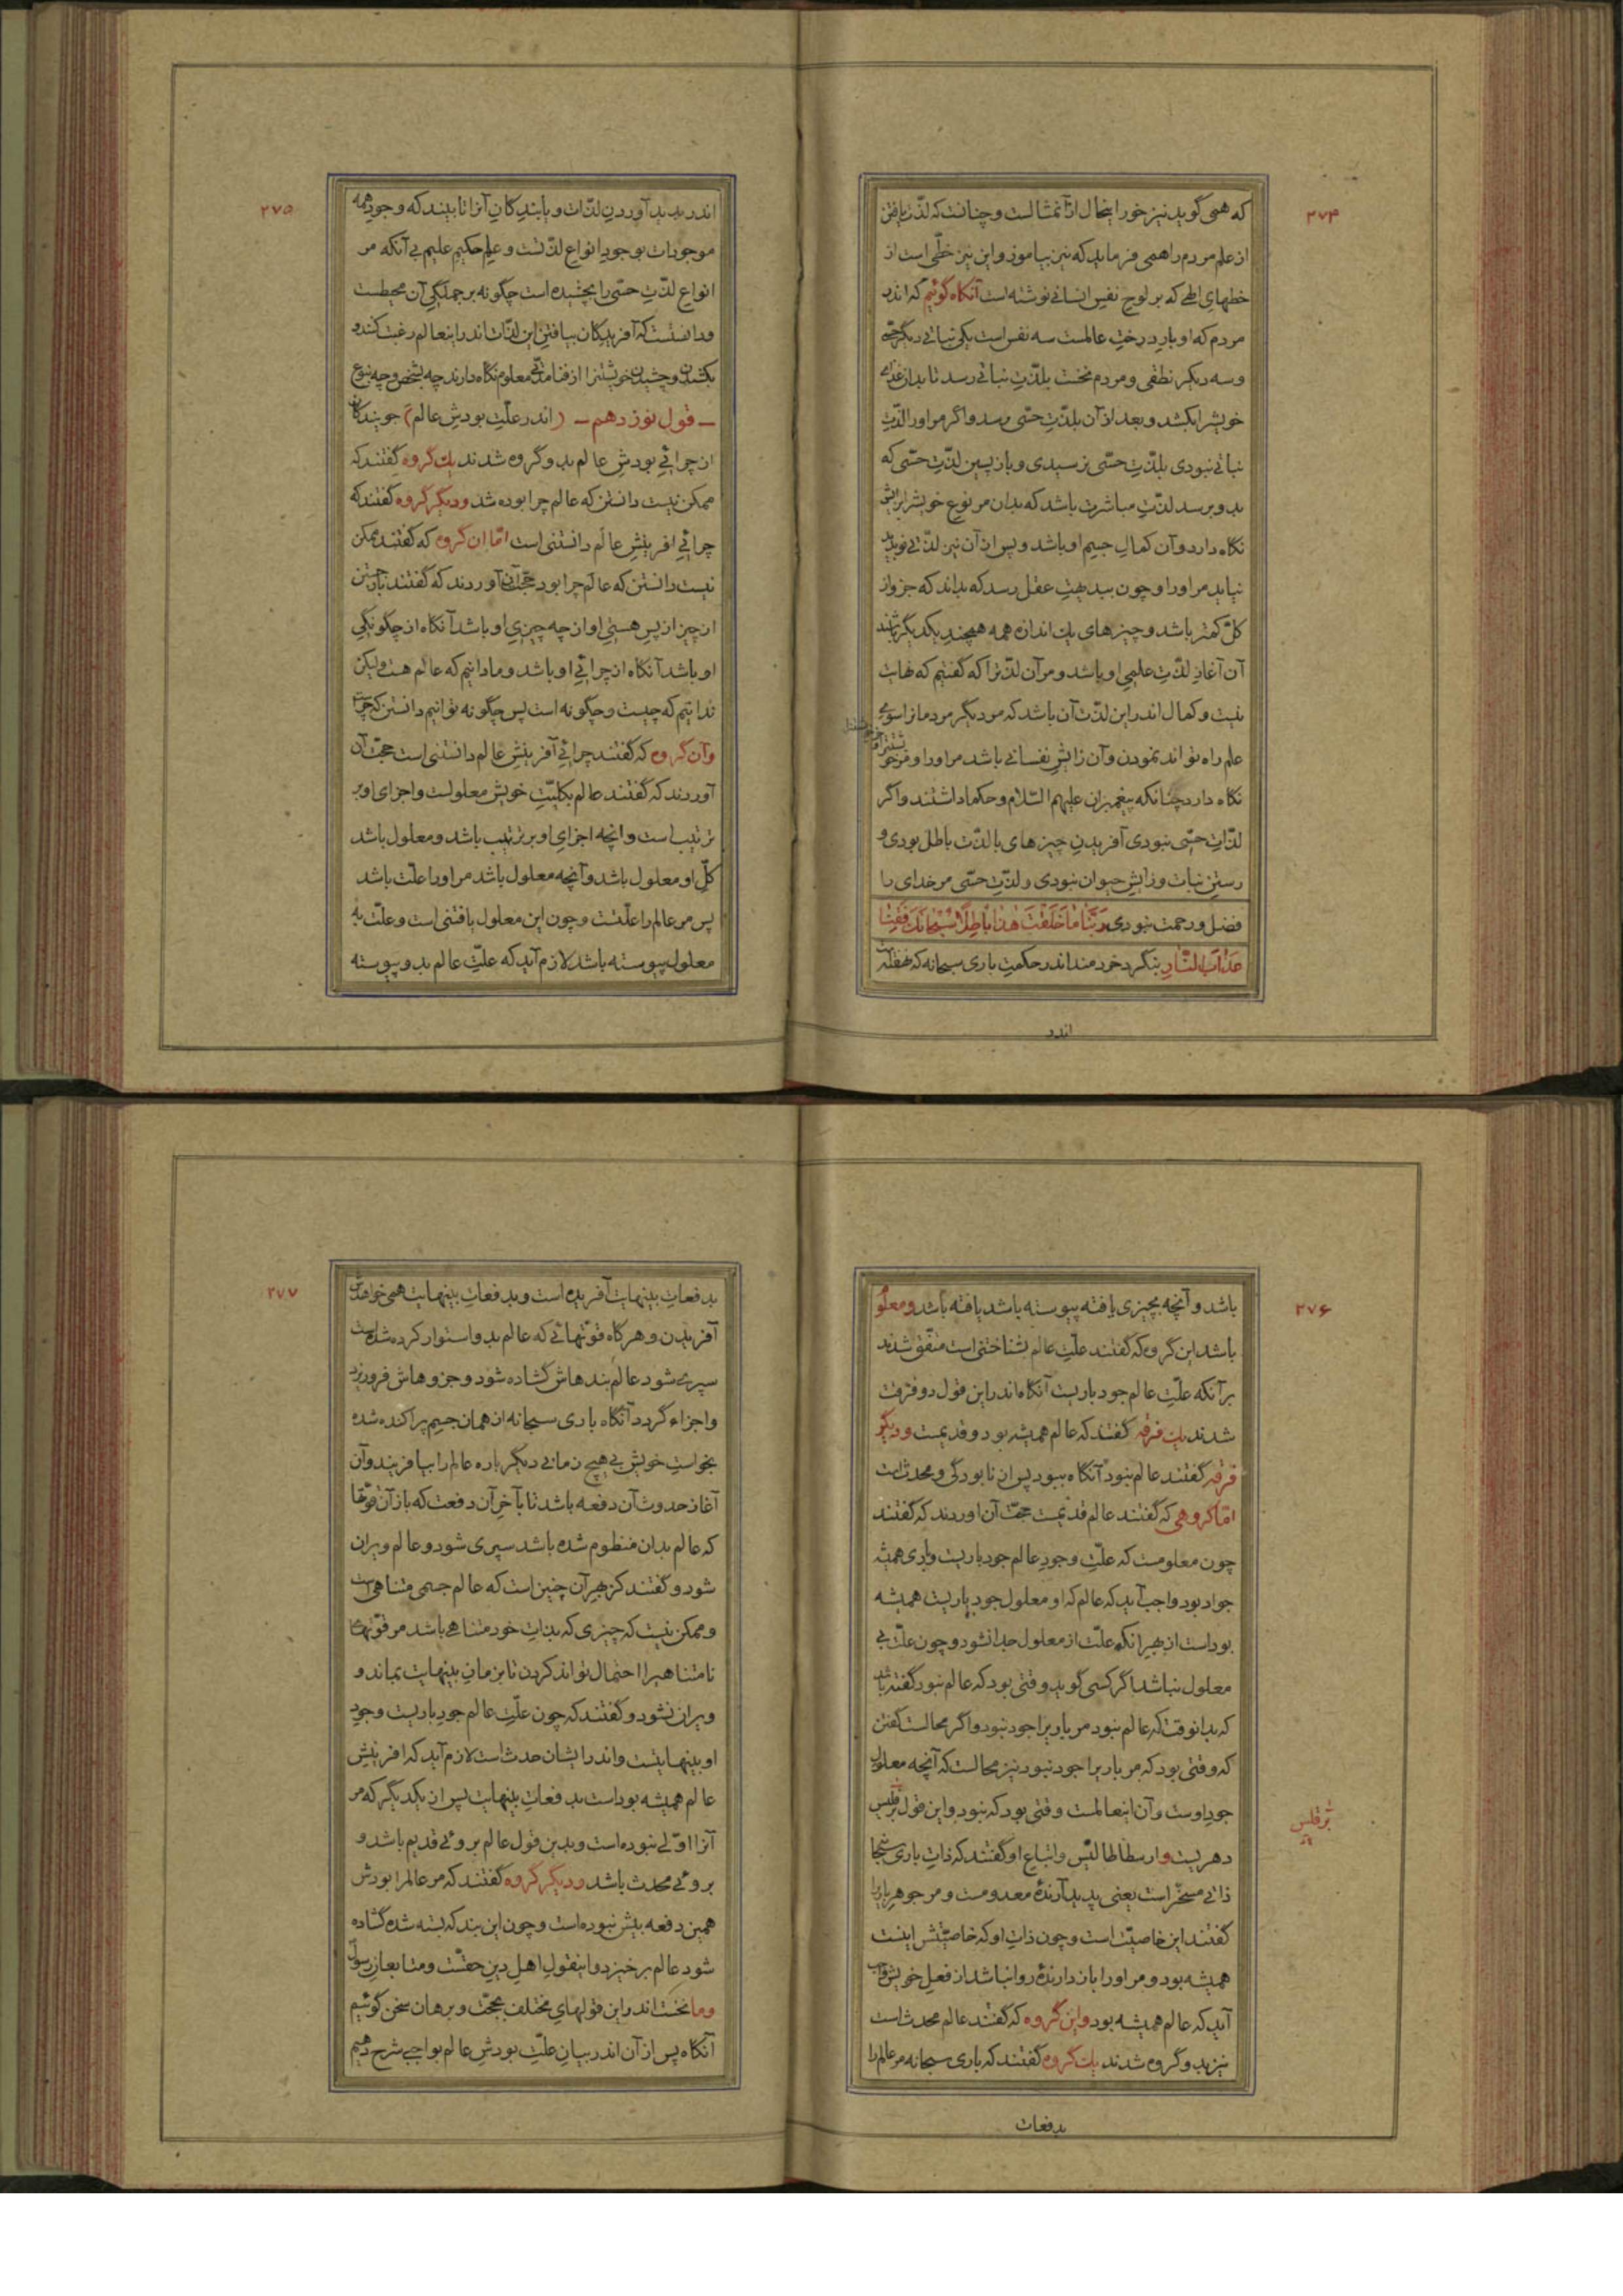 ۲۷۴
که همی گوید نیز خور اینحال از آنمثالست و چنانست که لذّت یافتن
از علم مردم را همی فرماید که نیز بیاموز و این نیز خطّی است از
خطهای الهی که بر لوح نفس انسانی نوشته است آنگاه گوئیم که اندر
مردم که او بار درخت عالمست سه نفس است یکی نباتی دیگر حسّی
و سه دیگر نطقی و مردم نخست بلذّتِ نباتی رسد تا بدان غذای
خویش را بکشد و بعد از آن بلذّتِ حسّی رسد و اگر مر او را لذّتِ
نباتی نبودی بلذّتِ حسّی نرسیدی و بازپسین لذّتِ حسّی که
بدو برسد لذّتِ مباشرت باشد که بدان مر نوع خویش را بزایش
نگاه دارد و آن کمالِ جسمِ او باشد و پس از آن نیز لذّتی نو پدید
نیاید مر او را و چون ببدیهتِ عقل رسد که بداند که جزو از
کلّ کمتر باشد و چیزهای یک اندازه همه همچند یکدیگر باشند
آن آغازِ لذّتِ علمیِ او باشد و مر آن لذّت را که گفتیم که نهایت
نیست و کمال اندر این لذّت آن باشد که مر دیگر مردمانرا سوی
علم راه تواند نمودن و آن زایشِ نفسانی باشد مر او را و مر خویشتن را
نگاه دارد چنانکه پیغمبران علیهم السّلام و حکما داشتند و اگر
لذّاتِ حسّی نبودی آفریدنِ چیزهای با لذّت باطل بودی و
رستنِ نبات و زایشِ حیوان نبودی و لذّتِ حسّی مر خدای را
فضل و رحمت نبودی رَبَّنَا مَا خَلَقْتَ هَذَا بَاطِلًا سُبْحَانَكَ فَقِنَا
عَذَابَ النَّارِ بنگرد خردمند اندر حکمتِ باری سبحانه که نهفته است
اندر
۲۷۵
اندر پدید آوردنِ لذّات و یابندگانِ آنرا تا ببیند که وجودِ همه
موجودات بوجودِ انواعِ لذّتست و علمِ حکیمِ علیم بی آنکه مر
انواعِ لذّتِ حسّی را بچشیده است چگونه بر جملگیِ آن محیطست
و دانستست که آفریدگان بیافتنِ این لذّات اندر اینعالم رغبت کنند و
بکشیدن و چشیدن خویشتن را از فنا مدّتی معلوم نگاه دارند چه بشخص و چه بنوع
ـ قول نوزدهم ـ (اندر علّتِ بودشِ عالم) جویندگان
از چرائیِ بودشِ عالم بدو گروه شدند یک گروه گفتند که
ممکن نیست دانستن که عالم چرا بوده شد و دیگر گروه گفتند که
چرائیِ آفرینشِ عالَم دانستنی است امّا آن گروه که گفتند ممکن
نیست دانستن که عالَم چرا بود حجّت آن آوردند که گفتند باز جستن
از چیز از پسِ هستیِ او از چه چیزیِ او باشد آنگاه از چگونگیِ
او باشد آنگاه از چرائیِ او باشد و ما دانیم که عالم هست ولیکن
ندانیم که چیست و چگونه است پس چگونه توانیم دانستن که چراست
و آن گروه که گفتند چرائیِ آفرینشِ عالم دانستنی است حجّت آن
آوردند که گفتند عالم بکلیّتِ خویش معلولست و اجزای او بر
ترتیب است و آنچه اجزایِ او بر ترتیب باشد و معلول باشد
کلِّ او معلول باشد و آنچه معلول باشد مر او را علّت باشد
پس مر عالم را علّتست و چون این معلول یافتنی است و علّت به
معلول پیوسته باشد لازم آید که علّتِ عالم بدو پیوسته
۲۷۶
باشد و آنچه بچیزی یافته پیوسته باشد یافته باشد و معلوم
باشد این گروه که گفتند علّتِ عالم شناختنی است متّفق شدند
بر آنکه علّتِ عالم جود باریست آنگاه اندر این قول دو فرقت
شدند یک فرقه گفتند که عالم همیشه بود و قدیمست و دیگر
فرقه گفتند عالم نبود آنگاه ببود پس از نابودگی و محدثست
امّا گروهی که گفتند عالم قدیمست حجّت آن آوردند که گفتند
چون معلومست که علّتِ وجودِ عالم جود باریست و باری همیشه
جواد بود واجب آید که عالم که او معلولِ جودِ باریست همیشه
بوداست از بهرِ آنکه علّت از معلول جدا نشود و چون علّت بی
معلول نباشد اگر کسی گوید وقتی بود که عالم نبود گفته باشد
که بدانوقت که عالم نبود مر باریرا جود نبود و اگر محالست گفتن
که وقتی بود که مر باریرا جود نبود نیز محالست که آنچه معلولِ
جودِ اوست و آن اینعالمست وقتی بود که نبود و این قول برقلس
برقلس
دهریست و ارسطاطالیس و اتباعِ او گفتند که ذاتِ باری سبحانه
ذاتی مسخّر است یعنی پدید آرندۀ معدومست و مر جوهرِ باریرا
گفتند این خاصیّت است و چون ذاتِ او که خاصیّتش اینست
همیشه بود و مر او را باز دارندۀ روا نباشد از فعلِ خویش واجب
آید که عالم همیشه بود و این گروه که گفتند عالم محدث است
نیز بدو گروه شدند یک گروه گفتند که باری سبحانه مر عالم را
بدفعات
۲۷۷
بدفعاتِ بینهایت آفریده است و بدفعاتِ بینهایت همی خواهدش
آفریدن و هرگاه قوّتهائی که عالم بدو استوار کرده شده است
سپری شود عالم بندهاش گشاده شود و جزوهاش فرو ریزد
و اجزاء گردد آنگاه باری سبحانه از همان جسمِ پراکنده شده
بخواستِ خویش بی هیچ زمانی دیگر باره عالم را بیافریند و آن
آغازِ حدوثِ آن دفعه باشد تا بآخرِ آن دفعت که باز آن قوّتها
که عالم بدان منظوم شده باشد سپری شود و عالم ویران
شود و گفتند کز بهرِ آن چنین است که عالم جسمی متناهی است
و ممکن نیست که چیزی که بذاتِ خود متناهی باشد مر قوّتهای
نامتناهیرا احتمال تواند کردن تا بزمانِ بینهایت بماند و
ویران نشود و گفتند که چون علّتِ عالم جودِ باریست و جودِ
او بینهایتست و اندر ایشان حدث است لازم آید که آفرینشِ
عالم همیشه بوداست بدفعاتِ بینهایت پس از یکدیگر که مر
آنرا اوّلی نبوده است و بدین قول عالم بروئی قدیم باشد و
بروئی محدث باشد و دیگر گروه گفتند که مر عالمرا بودش
همین دفعه بیش نبوده است و چون این بند که بسته شده گشاده
شود عالم برخیزد و اینقولِ اهلِ دینِ حقّست و متابعانِ رسولان
و ما نخست اندر این قولهایِ مختلف بحجّت و برهان سخن گوئیم
آنگاه پس از آن اندر بیانِ علّتِ بودشِ عالم بواجبی شرح دهیم